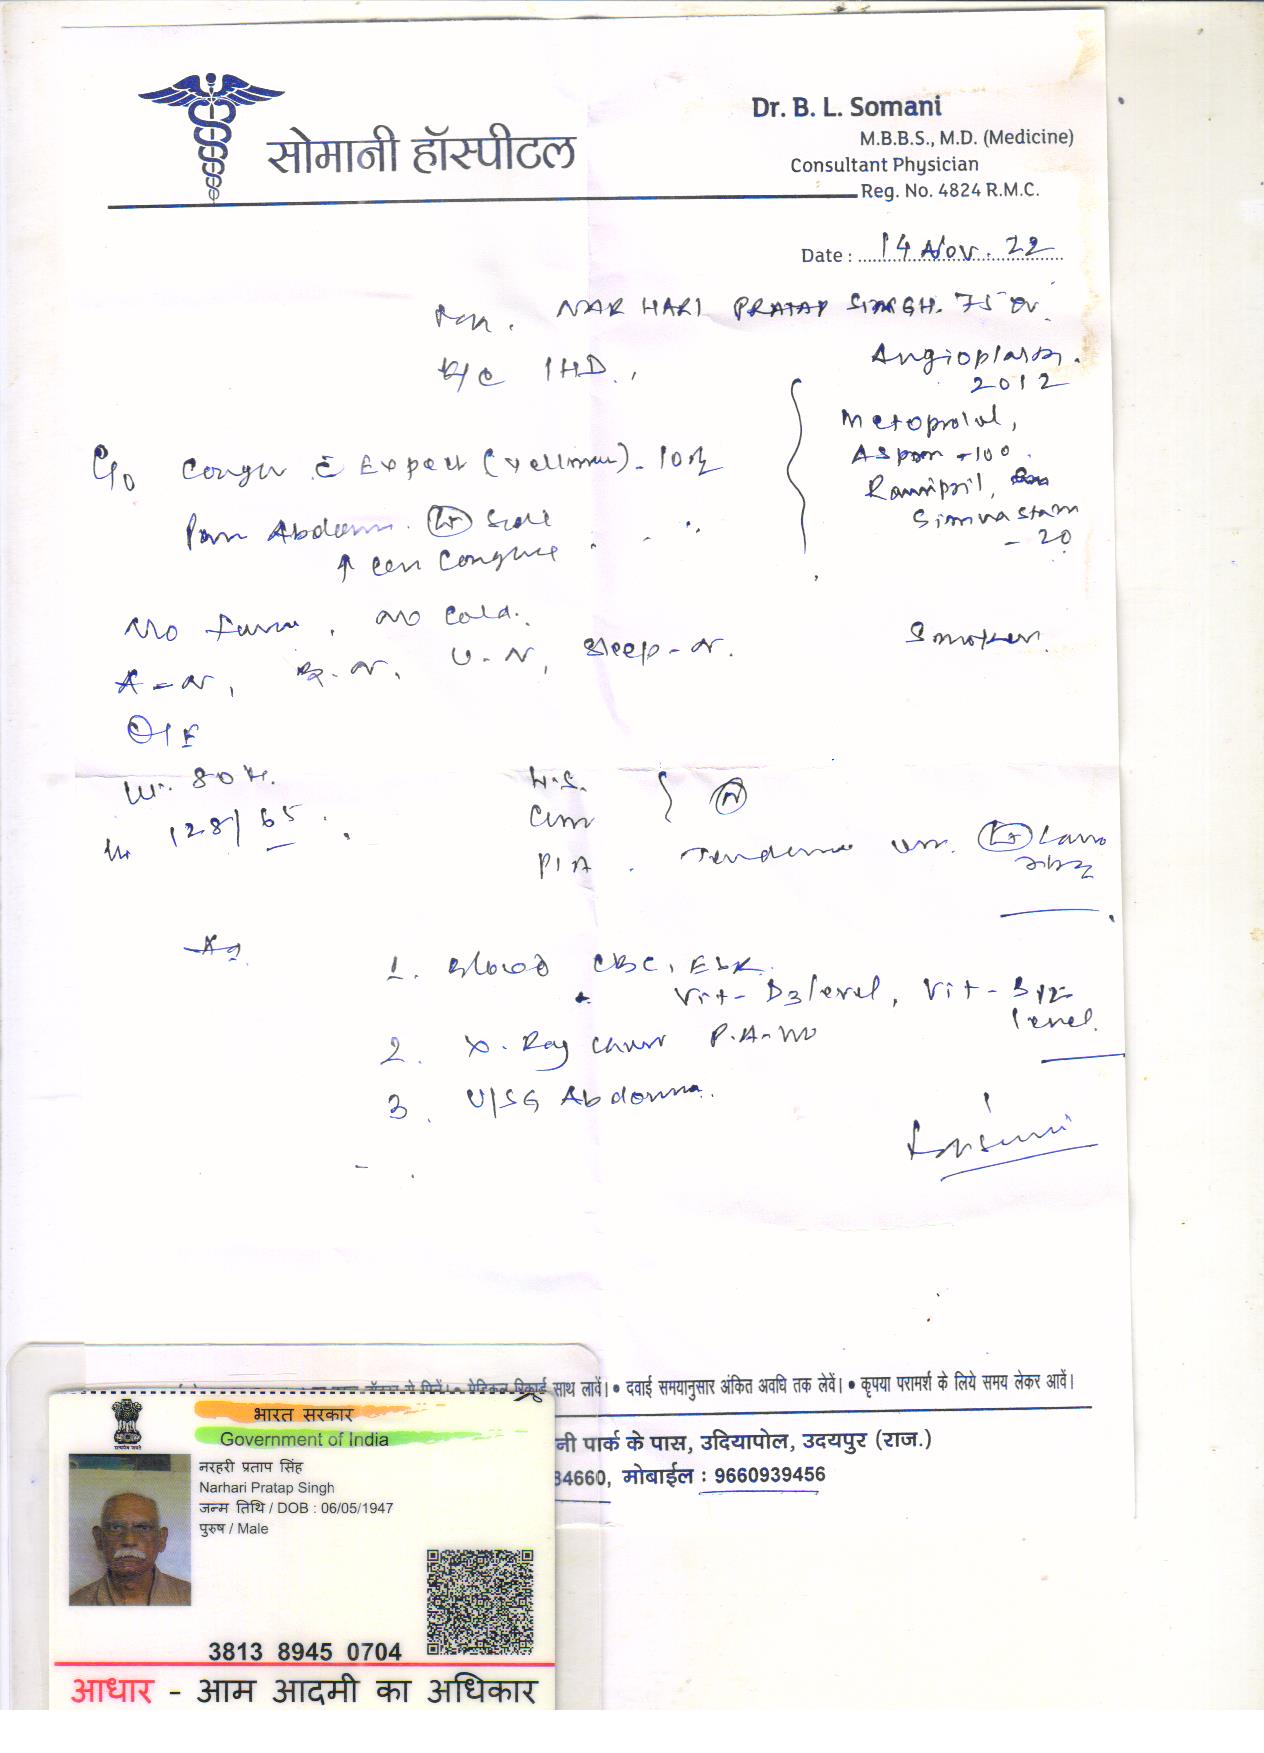 सोमानी हॉस्पीटल
Dr. B. L. Somani
M.B.B.S., M.D. (Medicine)
Consultant Physician
Reg. No. 4824 R.M.C.
Date : 14 Nov. 22
NAR HARI PRATAP SINGH. 75
K/C IHD.
Angioplasty.
2012
Metoprolol,
Aspirin - 100.
Ramipril,
Simvastatin
- 20
C/o Cough c Expect (yellow) - 10
Pain Abdomen. (Lt) Side
↑ Coughing
No fever, no cold.
A - N, B. N, U - N, Sleep - N.
Smoker.
O/E
Wt. 80 K.
128/65.
H.S.
CNS
(N)
P/A. Tenderness (Lt)
1. Blood CBC, ESR.
Vit - D3 level, Vit - B12
level.
2. X. Ray Chest P.A.
3. U/SG Abdomen.
साथ लावें। • दवाई समयानुसार अंकित अवधि तक लेवें। • कृपया परामर्श के लिये समय लेकर आवें।
नी पार्क के पास, उदियापोल, उदयपुर (राज.)
34660, मोबाईल : 9660939456
भारत सरकार
Government of India
नरहरी प्रताप सिंह
Narhari Pratap Singh
जन्म तिथि / DOB : 06/05/1947
पुरुष / Male
3813 8945 0704
आधार - आम आदमी का अधिकार